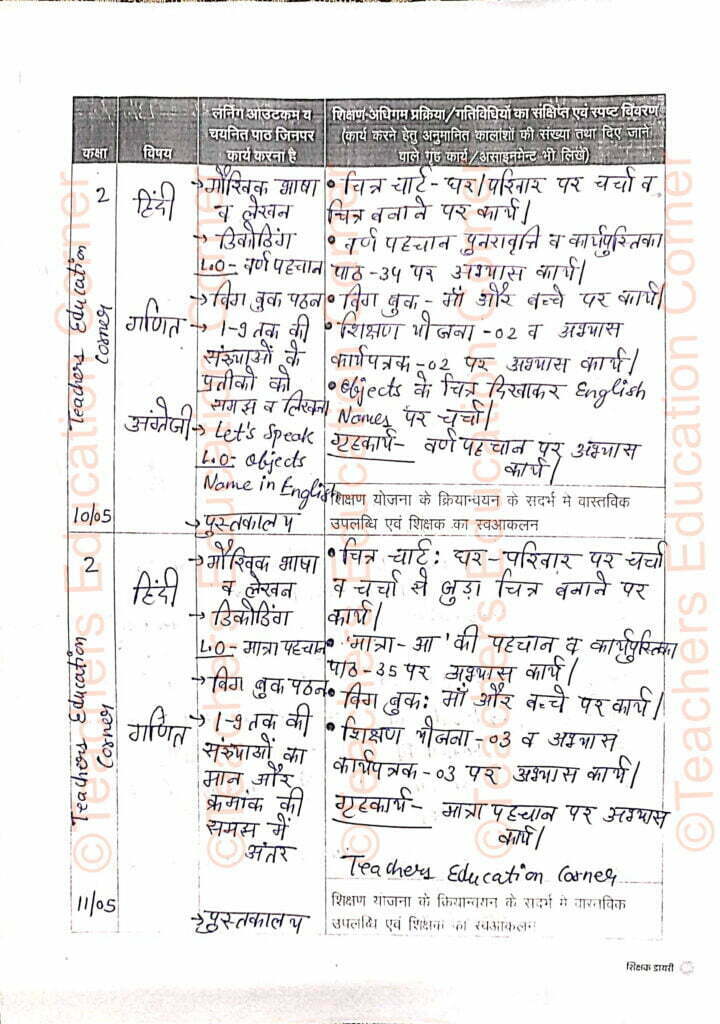 कक्षा
विषय
लर्निंग ऑउटकम व
चयनित पाठ जिनपर
कार्य करना है
शिक्षण-अधिगम प्रक्रिया/गतिविधियों का संक्षिप्त एवं स्पष्ट विवरण
(कार्य करने हेतु अनुमानित कालांशों की संख्या तथा दिए जाने
वाले गृह कार्य/असाइनमेन्ट भी लिखें)
2
हिंदी
→ मौखिक भाषा
व लेखन
→ डिकोडिंग
L.O- वर्ण पहचान
→ बिग बुक पठन
गणित
→ 1-9 तक की
संख्याओं के
प्रतीको को
समझ व लिखना
अंग्रेजी
→ Let's Speak
L.O- Objects
Name in English
→ पुस्तकालय
• चित्र चार्ट- घर/परिवार पर चर्चा व
चित्र बनाने पर कार्य/
• वर्ण पहचान पुनरावृत्ति व कार्यपुस्तिका
पाठ -34 पर अभ्यास कार्य/
• बिग बुक - माँ और बच्चे पर कार्य/
• शिक्षण योजना -02 व अभ्यास
कार्यपत्रक -02 पर अभ्यास कार्य/
• Objects के चित्र दिखाकर English
Names पर चर्चा/
गृहकार्य- वर्ण पहचान पर अभ्यास
कार्य/
शिक्षण योजना के क्रियान्वयन के सदर्भ मे वास्तविक
उपलब्धि एवं शिक्षक का स्वआकलन
10/05
Teachers Education
Corner
2
हिंदी
→ मौखिक भाषा
व लेखन
→ डिकोडिंग
L.O- मात्रा पहचान
→ बिग बुक पठन
गणित
→ 1-9 तक की
संख्याओं का
मान और
क्रमांक की
समझ में
अंतर
→ पुस्तकालय
• चित्र चार्ट: घर-परिवार पर चर्चा
व चर्चा से जुड़ा चित्र बनाने पर
कार्य/
• 'मात्रा-आ' की पहचान व कार्यपुस्तिका
पाठ -35 पर अभ्यास कार्य/
• बिग बुक: माँ और बच्चे पर कार्य/
• शिक्षण योजना -03 व अभ्यास
कार्यपत्रक -03 पर अभ्यास कार्य/
गृहकार्य- मात्रा पहचान पर अभ्यास
कार्य/
Teachers Education Corner
शिक्षण योजना के क्रियान्वयन के सदर्भ मे वास्तविक
उपलब्धि एवं शिक्षक का स्वआकलन
11/05
Teachers Education
Corner
शिक्षक डायरी
©Teachers Education Corner
©Teachers Education Corner
©Teachers Education Corner
©Teachers Education Corner